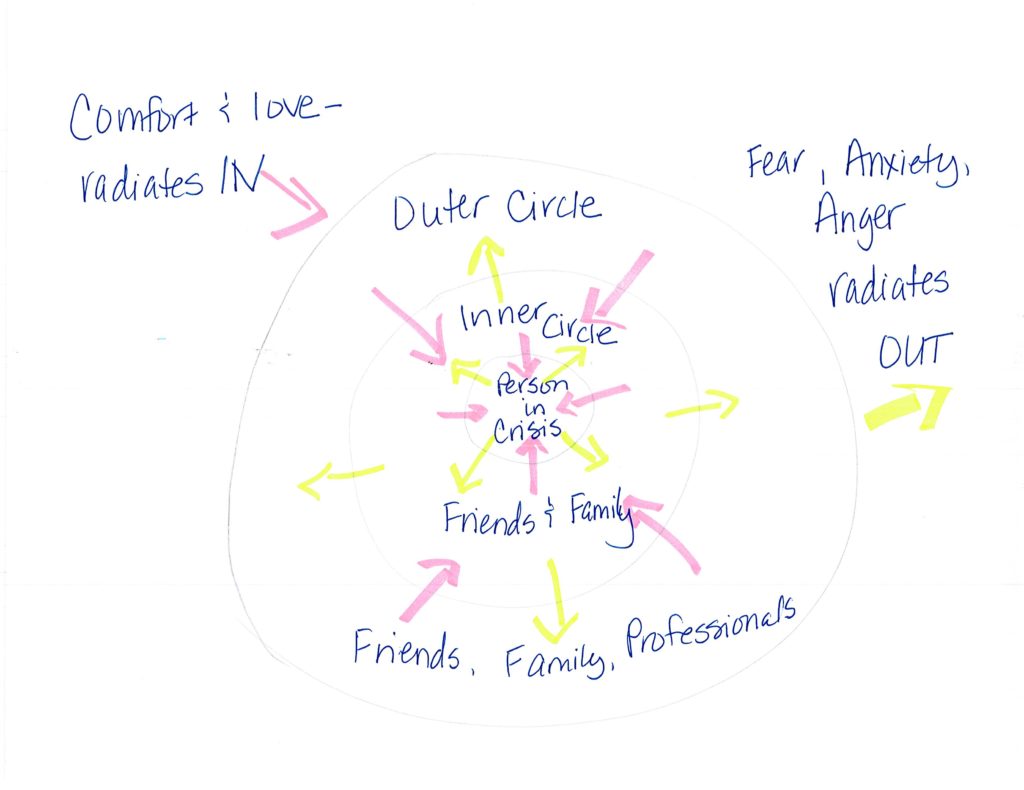 Comfort & love-
radiates IN
Fear, Anxiety,
Anger
radiates
OUT
Outer Circle
Inner Circle
Person
in
Crisis
Friends & Family
Friends, Family, Professionals